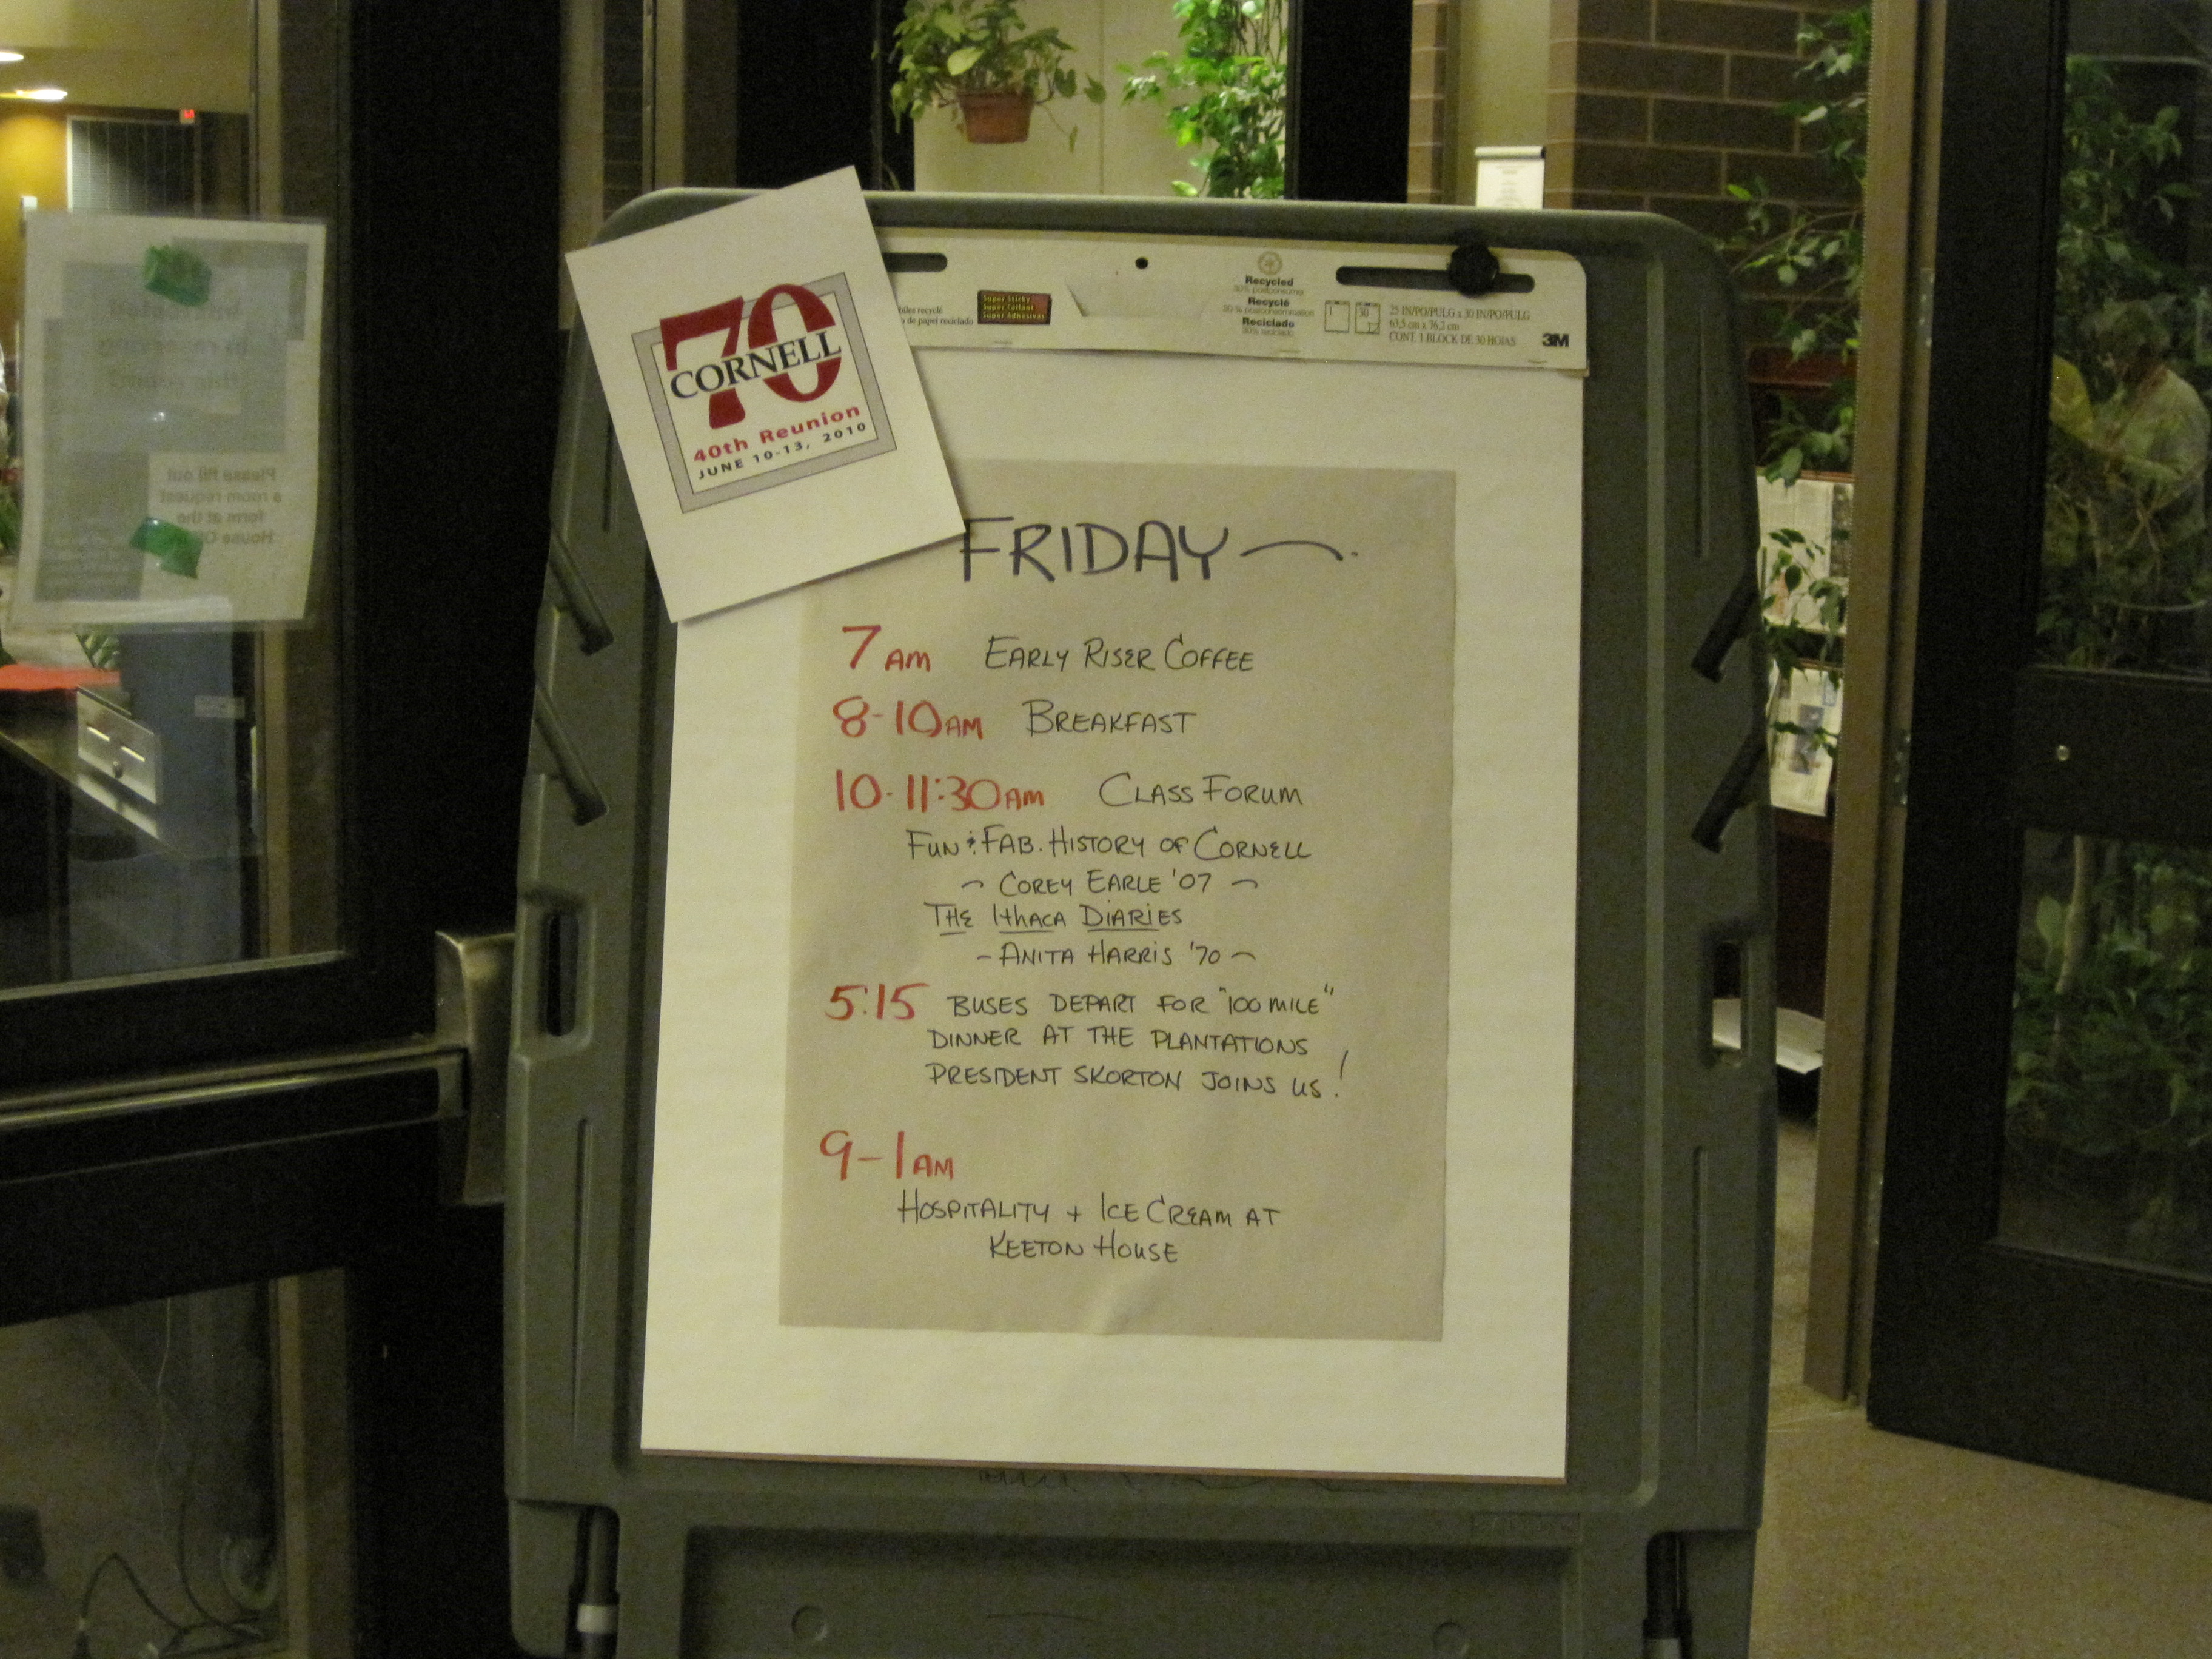 70
CORNELL
40th Reunion
JUNE 10-13, 2010
Recycled
Recyclé
Reciclado
Super Sticky
Super Collant
Super Adhesivas
de papel reciclado
25 IN/PO/PULG x 30 IN/PO/PULG
63,5 cm x 76,2 cm
CONT. 1 BLOCK DE 30 HOJAS
3M
FRIDAY
7 AM EARLY RISER COFFEE
8-10 AM BREAKFAST
10-11:30 AM CLASS FORUM
FUN & FAB. HISTORY OF CORNELL
~ COREY EARLE '07 ~
THE IthACA DIARIES
- ANITA HARRIS '70 ~
5:15 BUSES DEPART FOR "100 MILE"
DINNER AT THE PLANTATIONS
PRESIDENT SKORTON JOINS US!
9-1 AM
HOSPITALITY + ICE CREAM AT
KEETON HOUSE
Please fill out
a room request
form at the
House